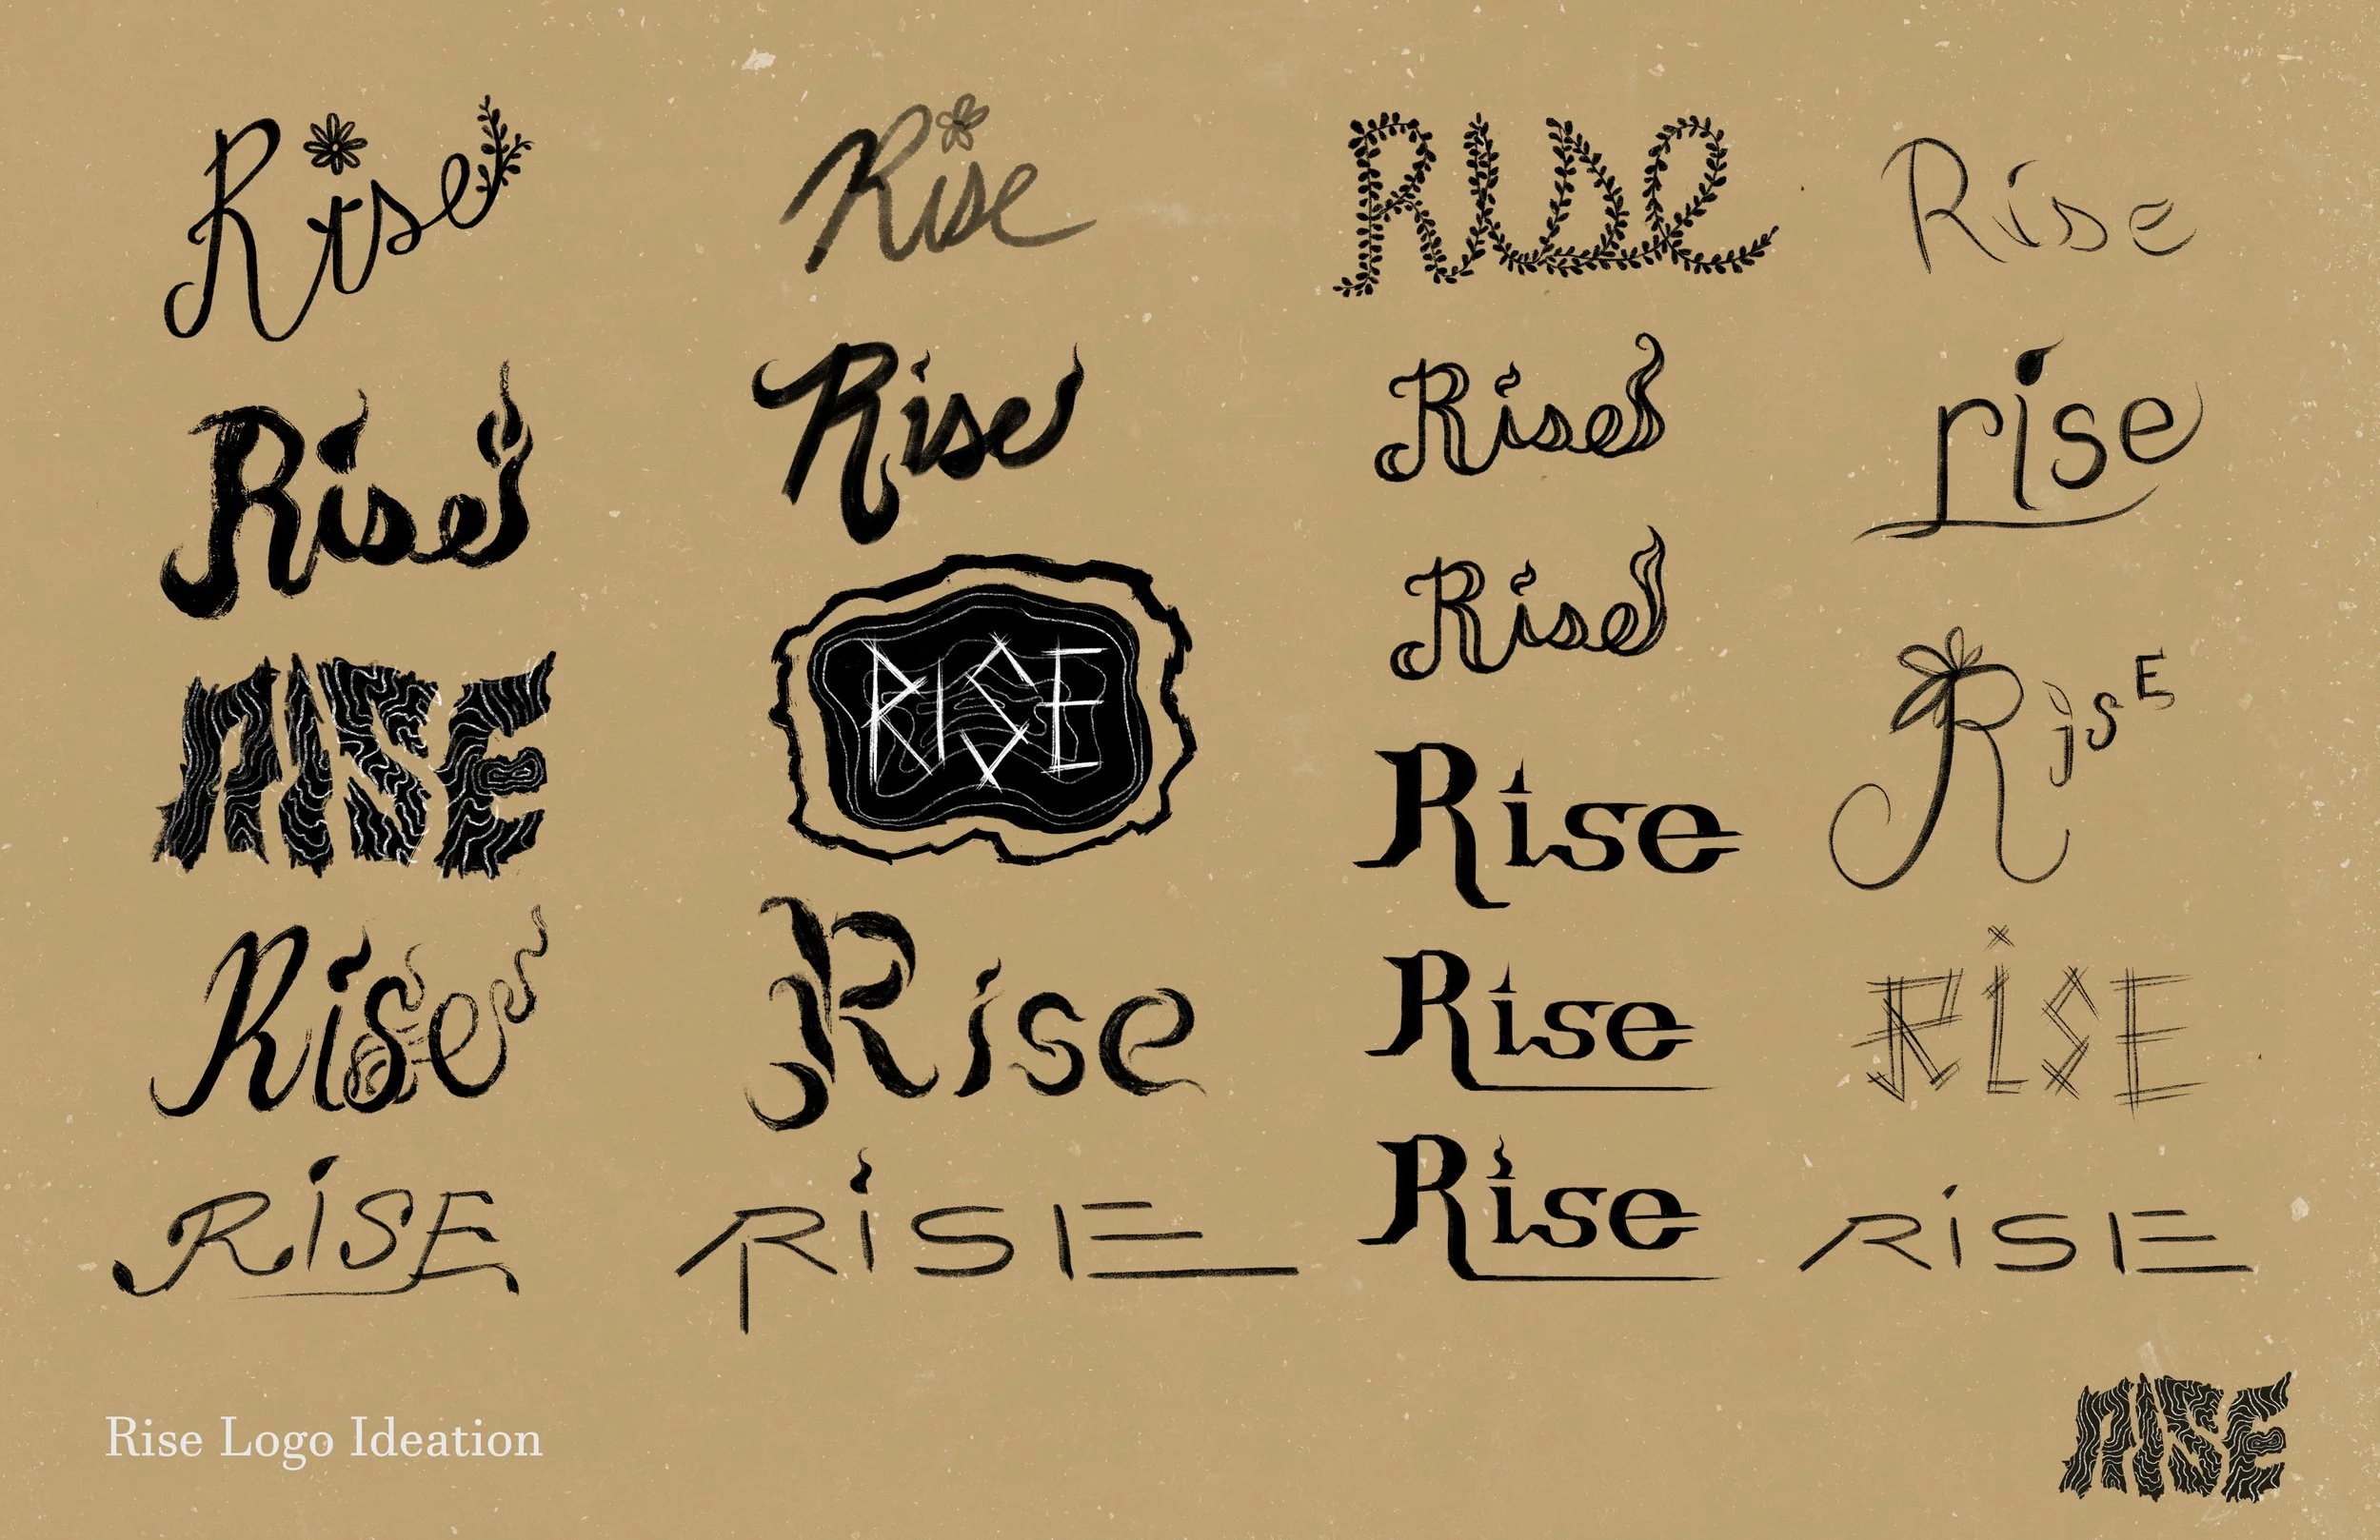 Rise
Rise
RISE
Rise
RiSE
Rise
Rise
RISE
Rise
RiSE
Rise
Rise
Rise
Rise
Rise
Rise
Rise
rise
RisE
RiSE
RiSE
Rise Logo Ideation
RISE